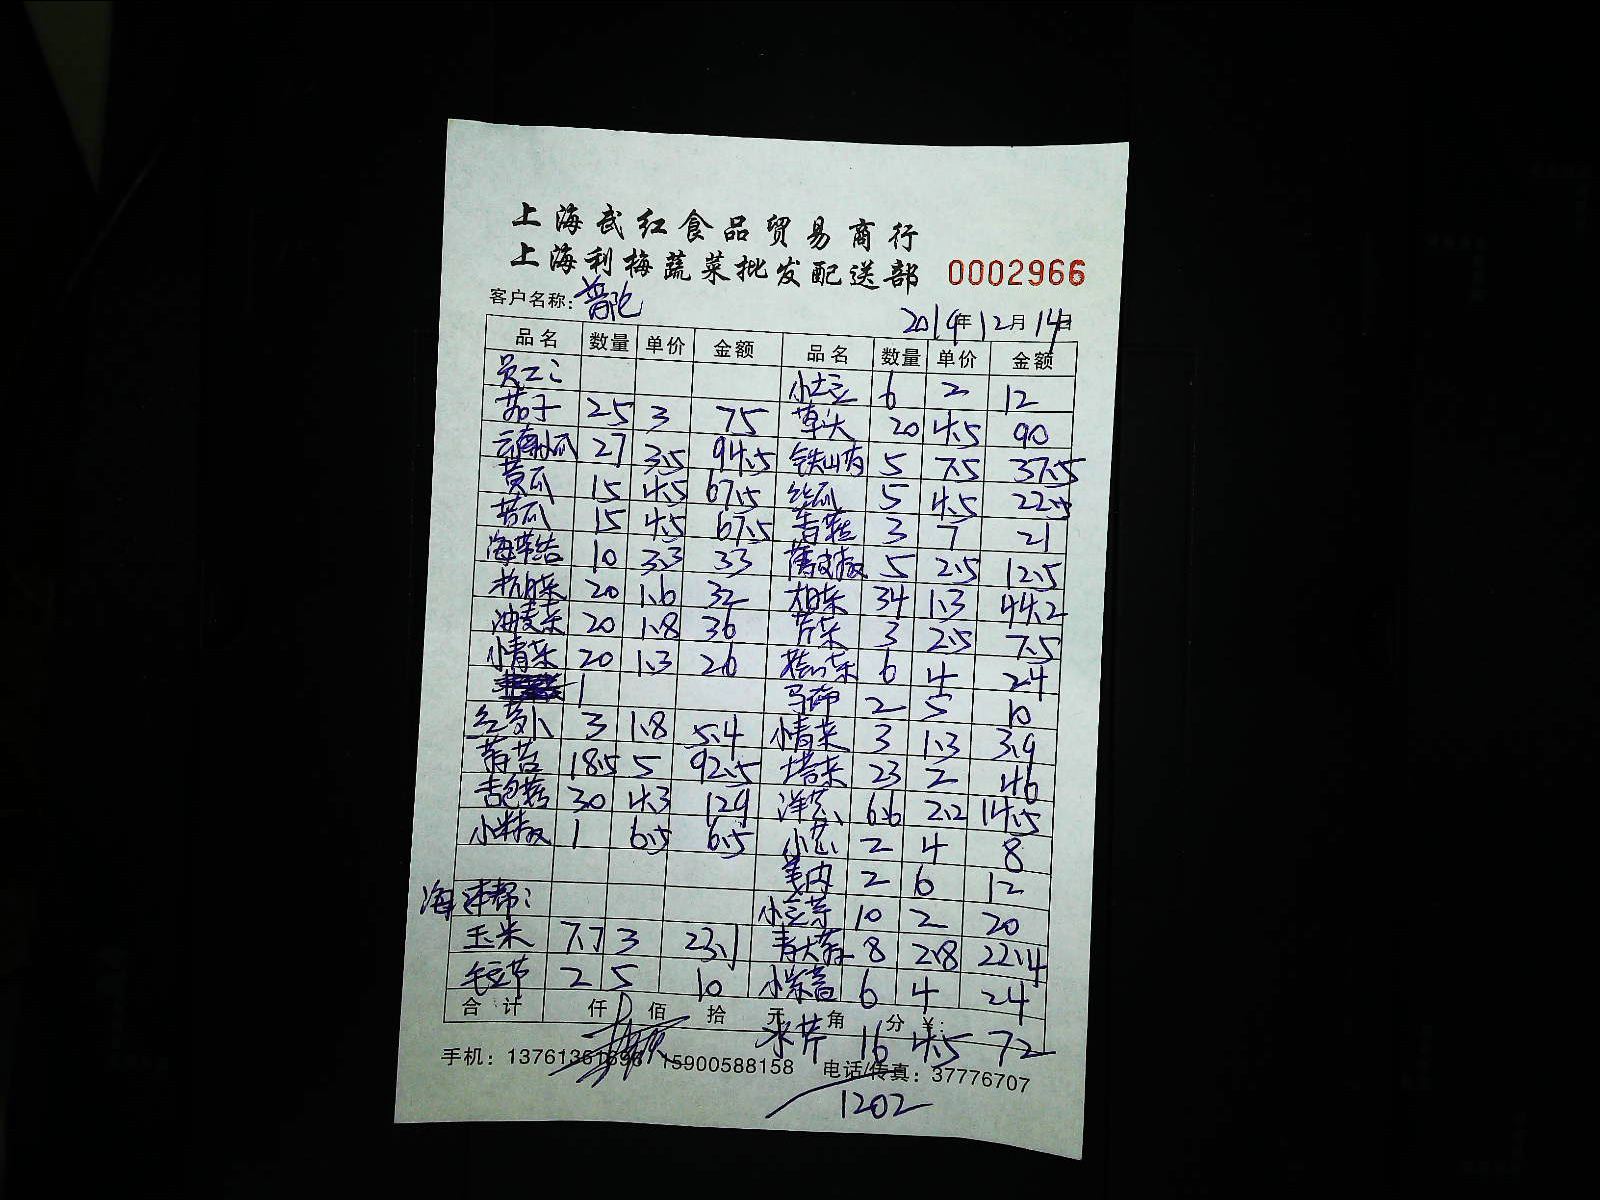 上海武红食品贸易商行
上海利梅蔬菜批发配送部 0002966
客户名称：普陀 2019年12月14日
品名 数量 单价 金额 品名 数量 单价 金额
员工： 小土豆 6 2 12
茄子 25 3 75 草头 20 4.5 90
云南小瓜 27 3.5 94.5 铁山药 5 7.5 37.5
黄瓜 15 4.5 67.5 丝瓜 5 4.5 22.5
苦瓜 15 4.5 67.5 香菇 3 7 21
海带结 10 3.3 33 薄皮椒 5 2.5 12.5
杭白菜 20 1.6 32 大白菜 34 1.3 44.2
油麦菜 20 1.8 36 芹菜 3 2.5 7.5
小青菜 20 1.3 26 6 4 24
1 马蹄 2 5 10
红萝卜 3 1.8 5.4 小青菜 3 1.3 3.9
18.5 5 92.5 塔菜 23 2 46
杏鲍菇 30 4.3 129 洋葱 6.6 2.2 14.5
小米椒 1 6.5 6.5 小葱 2 4 8
姜肉 2 6 12
海沭帮： 小豆芽 10 2 20
玉米 7.7 3 23.1 青大蒜 8 2.8 22.4
毛豆节 2 5 10 6 4 24
合计 仟 佰 拾 元 角 分 ¥：
水芹 16 4.5 72
手机：13761361896 15900588158 电话/传真：37776707
1202